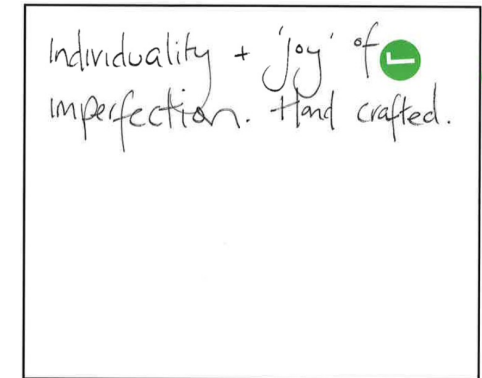 Individuality + 'joy' of
imperfection. Hand crafted.